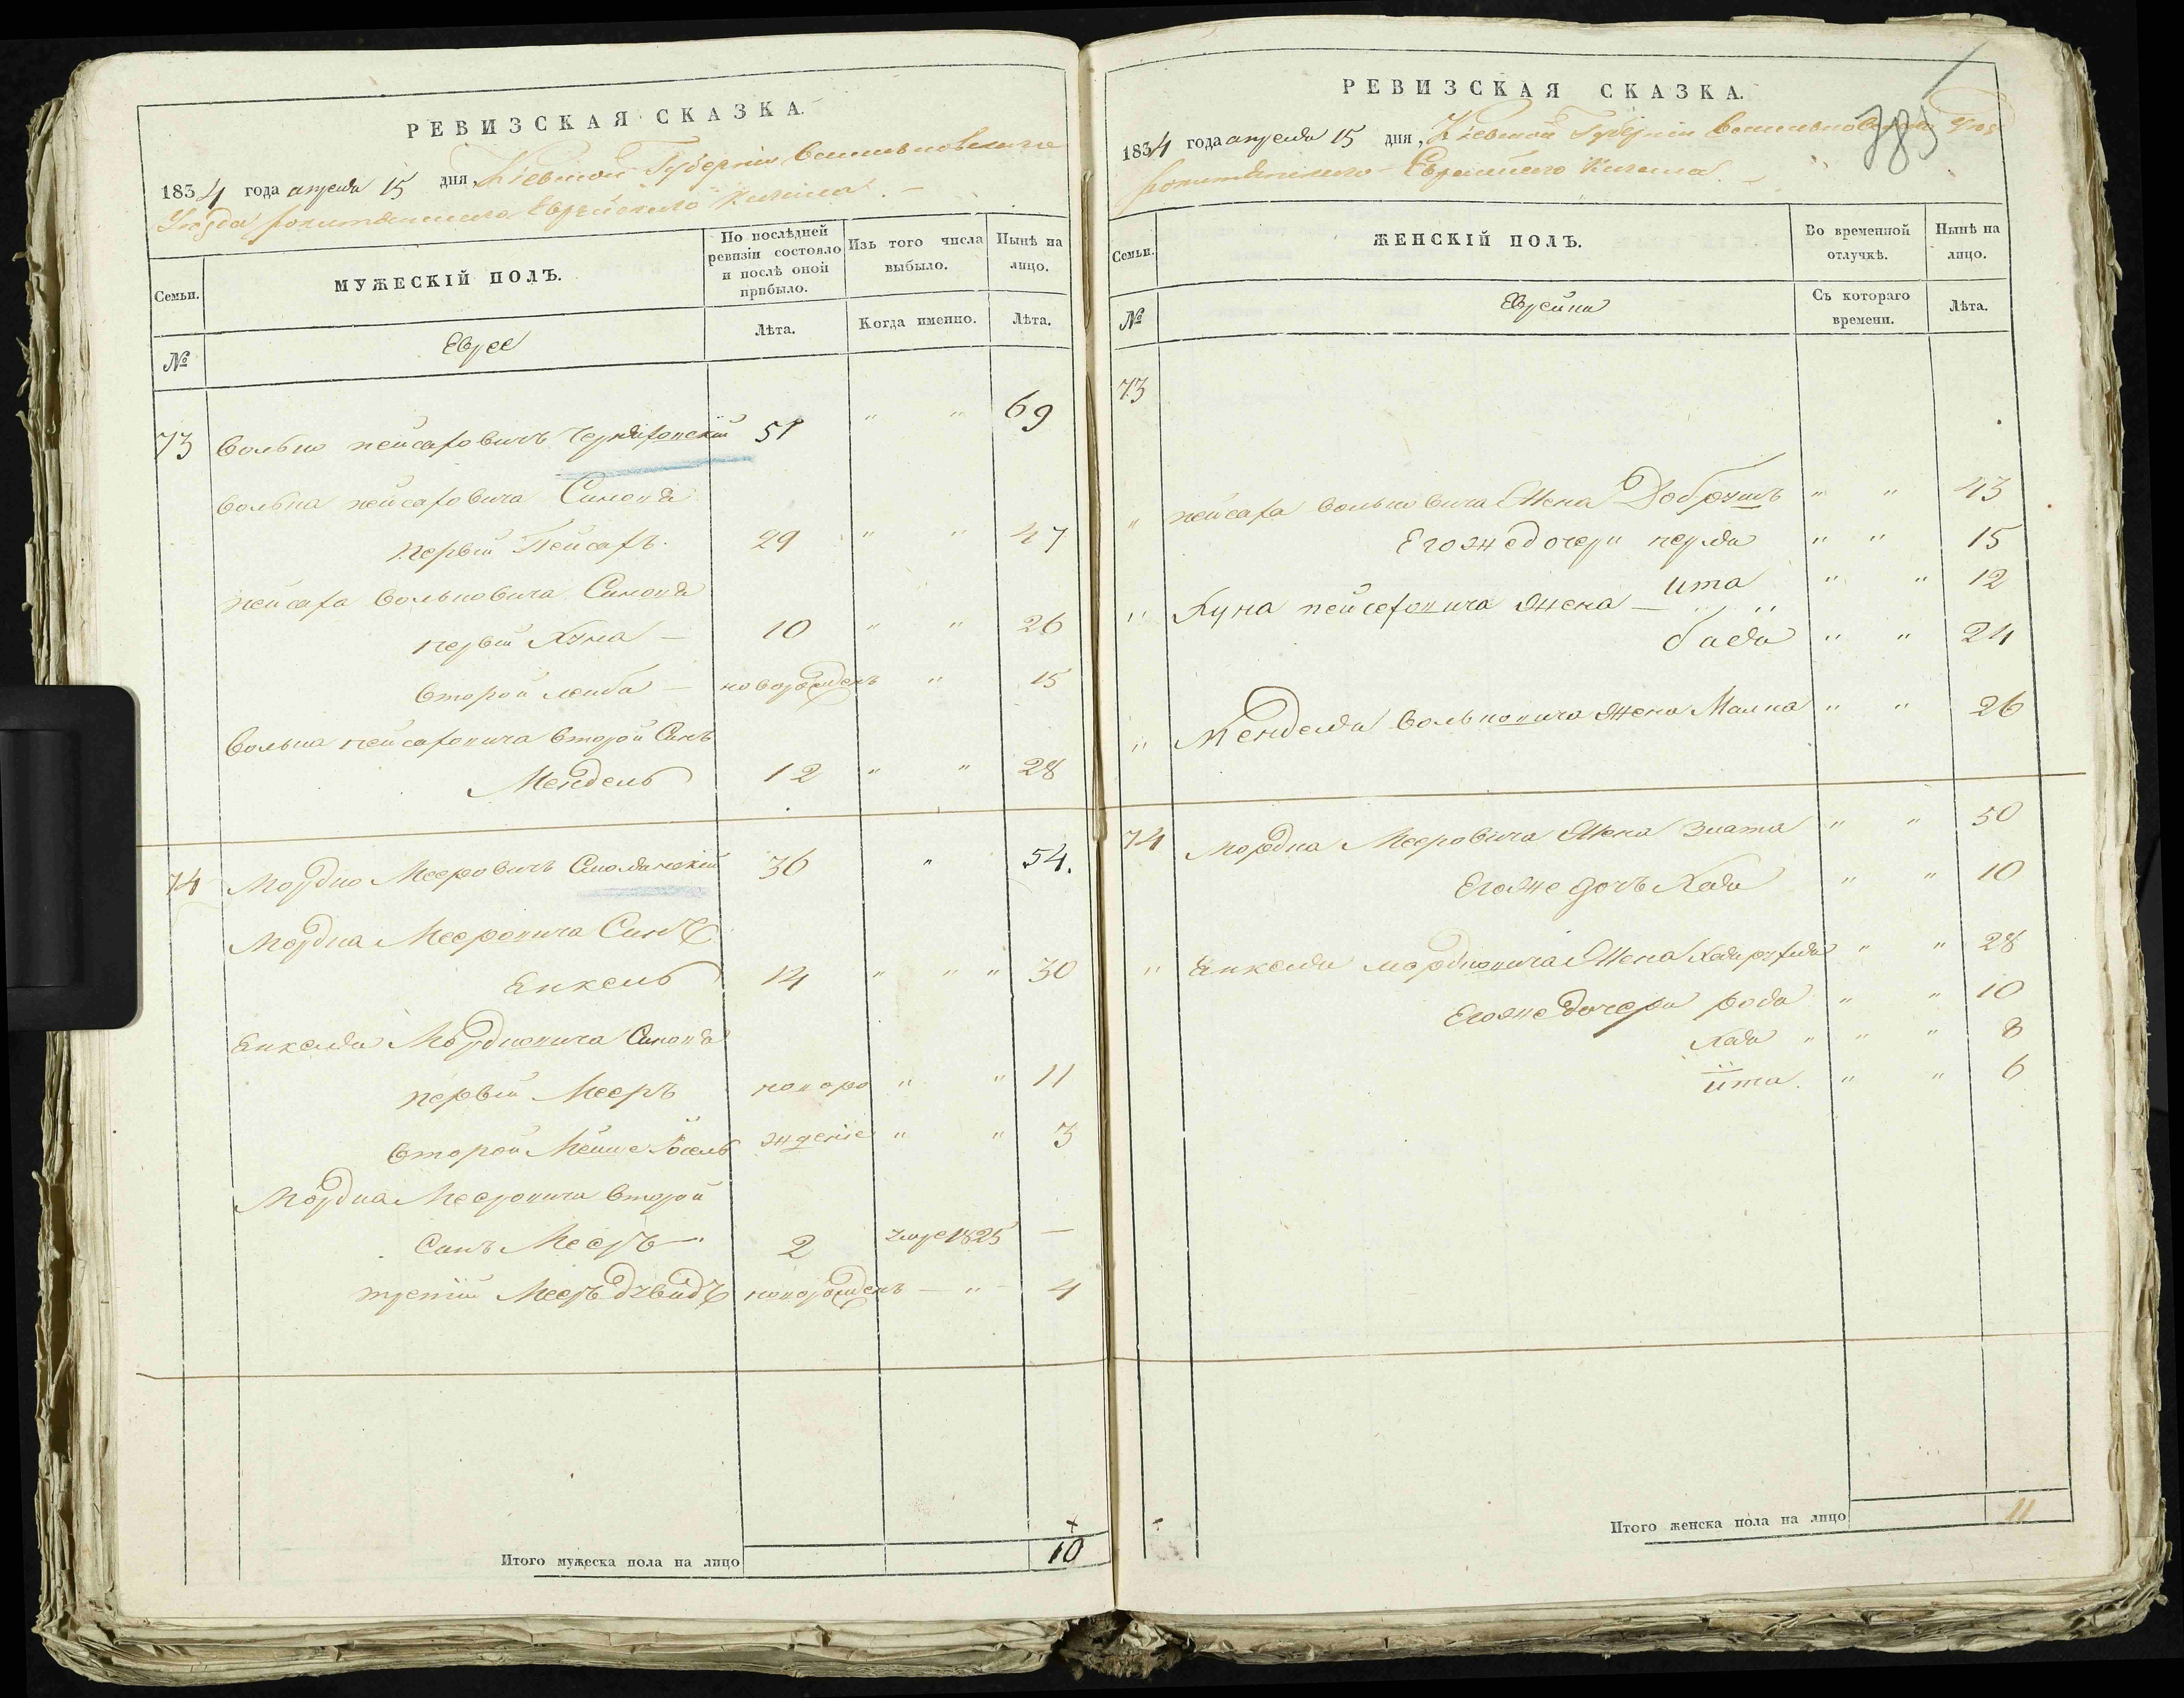 РЕВИЗСКАЯ СКАЗКА.
1834 года апреля 15 дня, Кіевской Губерніи Васильковскаго
Уезда Рокитянскаго Еврейскаго Кагала. —
Семьи.
МУЖЕСКІЙ ПОЛЪ.
По послѣдней ревизіи состояло и послѣ оной прибыло.
Изъ того числа выбыло.
Нынѣ на лицо.
№
Еврее
Лѣта.
Когда именно.
Лѣта.
73 Волько пейсаховичъ 51 " " 69
Волька пейсаховича Синовя
первій Пейсахъ. 29 " " 47
пейсаха Вольковича Синовя
первій Хуна — 10 " " 26
Второй лейба — новорожденъ " 15
Волька пейсаховича Второй Синъ
Мендель 12 " " 28
74 Мордко Мееровичъ Смолянскій 36 " 54.
Мордка Мееровича Синъ
Енкель 14 " " " 30
Енкеля Мордковича Синовя
первій Мееръ новоро " " 11
Второй Мойше Іосель жденіе " " 3
Мордка Мееровича Второй
Синъ Мееръ — 2 умре 1825 —
третій Мееръ новорожденъ — " 4
Итого мужеска пола на лицо 10
РЕВИЗСКАЯ СКАЗКА.
385
1834 года апреля 15 дня, Кіевской Губерніи Васильковскаго Уезда
Рокитянскаго Еврейскаго Кагала. —
Семьи.
ЖЕНСКІЙ ПОЛЪ.
Во временной отлучкѣ.
Нынѣ на лицо.
№
Еврейки
Съ котораго времени.
Лѣта.
73
" пейсаха Вольковича Жена Добрушъ " " 43
Егожедочери перля " " 15
Ита " " 12
" Хуна пейсаховича жена —
бадя " " 24
" Менделя Вольковича жена Малка " " 26
74 Мордка Мееровича Жена Злата " " 50
Егоже дочъ Хая " " 10
" Енкеля мордковича Жена " " 28
Егоже дочери " " 10
Хая " " " 8
Ита. " " 6
Итого женска пола на лицо 11